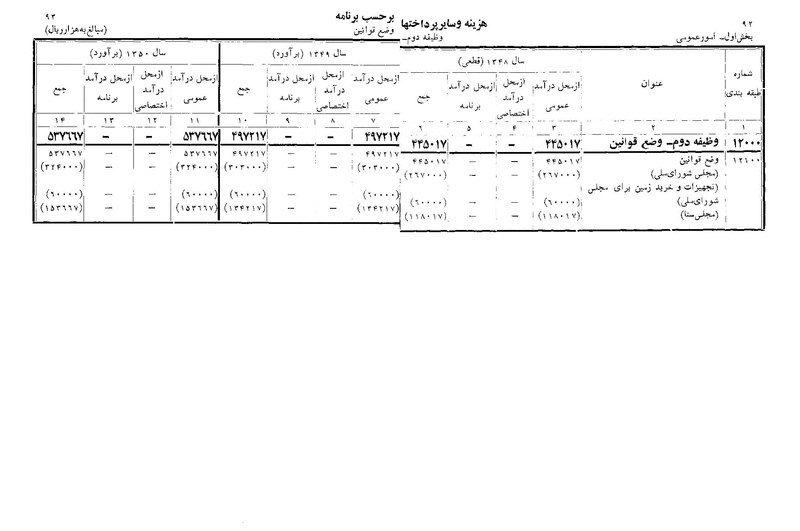 ۹۲
هزینه وسایرپرداختها برحسب برنامه
۹۳
بخش‌اول_ امورعمومی
وظیفه دوم_ وضع قوانین
(مبالغ به‌هزارریال)
شماره طبقه بندی
عنوان
سال ۱۳۴۸ (قطعی)
سال ۱۳۴۹ (برآورد)
سال ۱۳۵۰ (برآورد)
ازمحل درآمد عمومی
ازمحل درآمد اختصاصی
ازمحل درآمد برنامه
جمع
ازمحل درآمد عمومی
ازمحل درآمد اختصاصی
ازمحل درآمد برنامه
جمع
ازمحل درآمد عمومی
ازمحل درآمد اختصاصی
ازمحل درآمد برنامه
جمع
۱ ۲ ۳ ۴ ۵ ۶ ۷ ۸ ۹ ۱۰ ۱۱ ۱۲ ۱۳ ۱۴
۱۲۰۰۰ وظیفه دوم_ وضع قوانین ۴۴۵۰۱۷ – – ۴۴۵۰۱۷ ۴۹۷۲۱۷ – – ۴۹۷۲۱۷ ۵۳۷۶۶۷ – – ۵۳۷۶۶۷
۱۲۱۰۰ وضع قوانین ۴۴۵۰۱۷ – – ۴۴۵۰۱۷ ۴۹۷۲۱۷ – – ۴۹۷۲۱۷ ۵۳۷۶۶۷ – – ۵۳۷۶۶۷
(مجلس شورای‌ملی) (۲۶۷۰۰۰) – – (۲۶۷۰۰۰) (۳۰۳۰۰۰) – – (۳۰۳۰۰۰) (۳۲۴۰۰۰) – – (۳۲۴۰۰۰)
(تجهیزات و خرید زمین برای مجلس
شورای‌ملی) (۶۰۰۰۰) – – (۶۰۰۰۰) (۶۰۰۰۰) – – (۶۰۰۰۰) (۶۰۰۰۰) – – (۶۰۰۰۰)
(مجلس‌سنا) (۱۱۸۰۱۷) – – (۱۱۸۰۱۷) (۱۳۴۲۱۷) – – (۱۳۴۲۱۷) (۱۵۳۶۶۷) – – (۱۵۳۶۶۷)